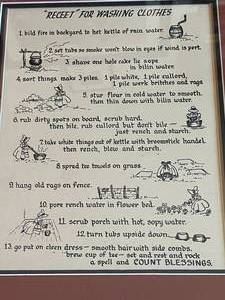 "RECEET" FOR WASHING CLOTHES
1. bild fire in backyard to het kettle of rain water.
2. set tubs so smoke won't blow in eyes if wind is pert.
3. shave one hole cake lie sope
in bilin water
4. sort things. make 3 piles. 1 pile white, 1 pile cullord,
1 pile werk britches and rags
5. stur flour in cold water to smooth.
then thin down with bilin water.
6. rub dirty spots on board, scrub hard,
then bile, rub cullord but don't bile —
just rench and starch.
7. take white things out of kettle with broomstick handel.
then rench, blew and starch.
8. spred tee towels on grass.
9. hang old rags on fence.
10. pore rench water in flower bed.
11. scrub porch with hot, sopy water.
12. turn tubs upside down.
13. go put on cleen dress - smooth hair with side combs.
brew cup of tee - set and rest and rock
a spell and COUNT BLESSINGS.